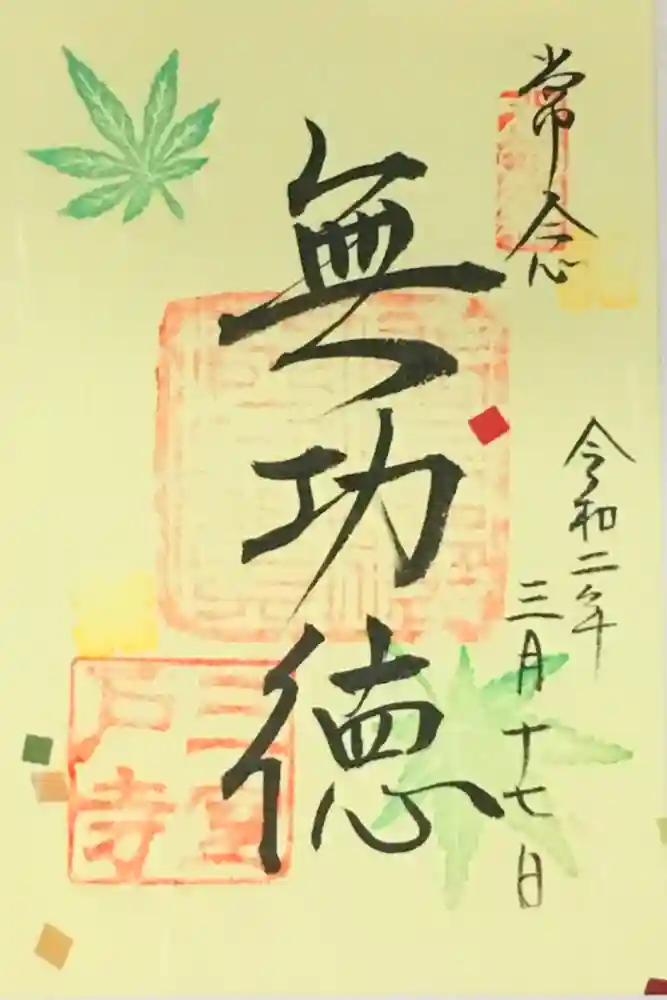 常念
無功徳
令和二年
三月十七日
三室
戸寺